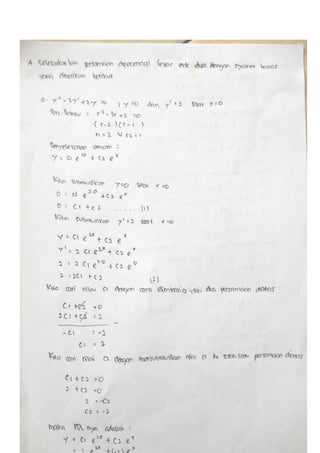 A. Selesaikanlah persamaan diferensial linear orde dua dengan syarat batas
yang diberikan berikut
a. y" - 3y' + 2y = 0 ; y = 0 dan y' = 2 saat x = 0
Pers. Bantu = r² - 3r + 2 = 0
(r - 2)(r - 1)
r1 = 2 V r2 = 1
Penyelesaian umum :
y = C1 e^2x + C2 e^x
Kita substitusikan y=0 saat x=0
0 = C1 e^2.0 + C2 e^0
0 = C1 + C2 ...... (1)
Kita substitusikan y'=2 saat x=0
y = C1 e^2x + C2 e^x
y' = 2 C1 e^2x + C2 e^x
2 = 2 C1 e^2.0 + C2 e^0
2 = 2C1 + C2 (2)
Kita cari nilai C1 dengan cara eliminasi dua persamaan diatas
C1 + C2 = 0
2C1 + C2 = 2
-
-C1 = -2
C1 = 2
Kita cari nilai C2 dengan mensubstitusikan nilai C1 ke salah satu persamaan diatas
C1 + C2 = 0
2 + C2 = 0
2 = -C2
C2 = -2
maka PDL nya adalah :
y = C1 e^2x + C2 e^x